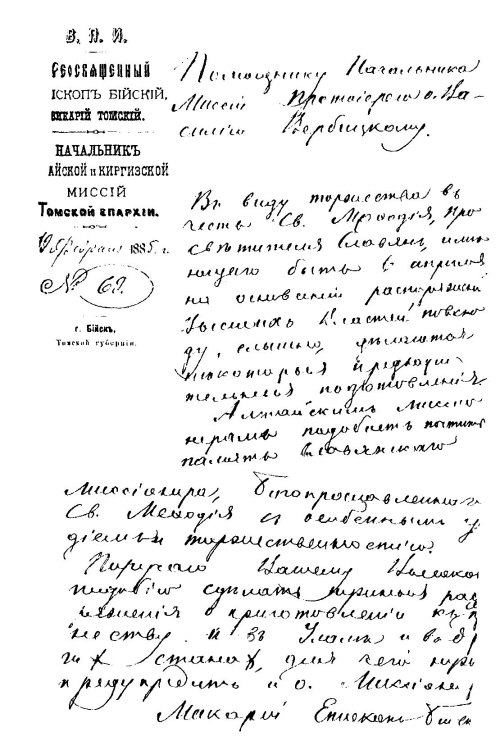 В. П. И.
РЕОСВЯЩЕННЫЙ
ІСКОПЪ БІЙСКІЙ,
ВИКАРІЙ ТОМСКІЙ.
НАЧАЛЬНИКЪ
АЙСКОЙ и КИРГИЗСКОЙ
МИССІЙ
ТОМСКОЙ ЕПАРХІИ.
9 Февраля 1885 г.
№ 62.
г. Бійскъ,
Томской губерніи.
Помощнику Начальника
Миссіи протоіерею о. Ва-
силію Вербицкому.
Въ виду торжества въ
честь Св. Меѳодія, про
свѣтителя Славянъ, имѣ
ющаго быть 6 апрѣля
на основаніи распоряженій
Высшихъ Властей повсю
ду, слышно, дѣлаются
нѣкоторыя предвари-
тельныя подготовленія.
Алтайскимъ миссіо
нерамъ подобаетъ почтить
память славянскаго
миссіонера, Богопрославленнаго
Св. Меѳодія съ особеннымъ
торжественностію.
Поручаю Вашему Высоко
подобію сдѣлать
о приготовленіи къ
честву и въ Улалѣ и въ др
гихъ станахъ, для чего
предупредить и о. Миссіоне
Макарій Епископъ Бійск